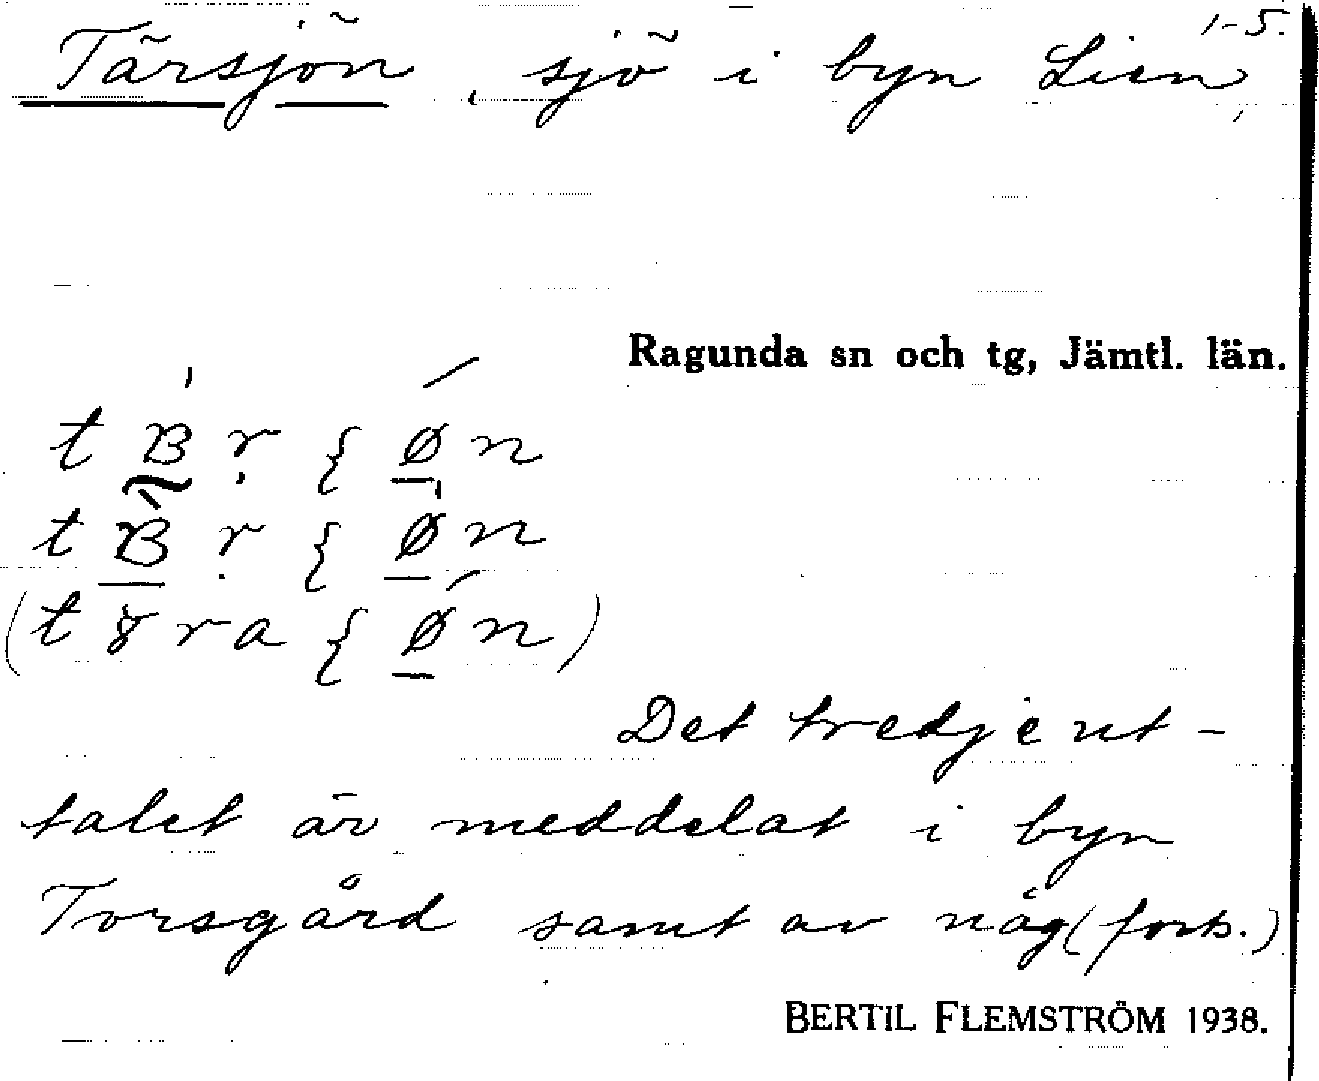 1-5.
Tärsjön, sjö i byn Lien,
Ragunda sn och tg, Jämtl. län.
Det tredje ut-
talet är meddelat i byn
Torsgård samt av någ (forts.)
BERTIL FLEMSTRÖM 1938.